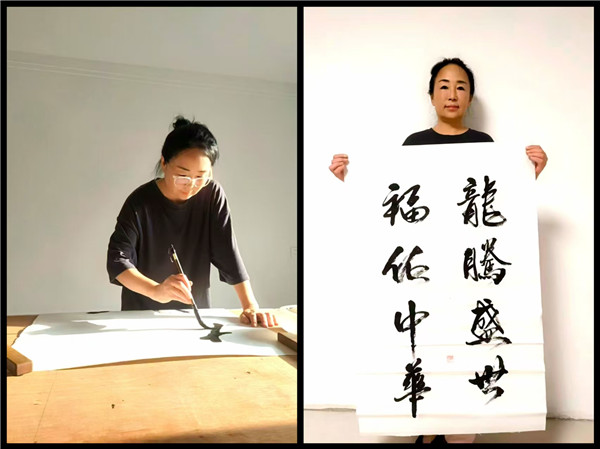 龍騰盛世
福佑中華